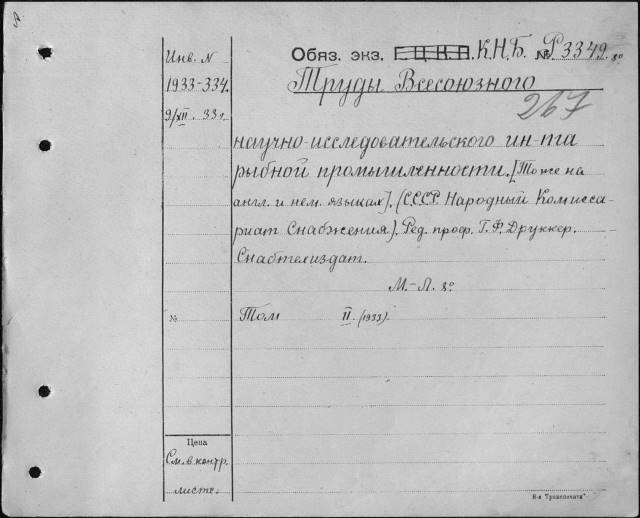 Инв. N
1933-334.
9/XII. 33 г.
Обяз. экз. Г.Ц.К.П. К.Н.Б. № Р3349. 8°
Труды Всесоюзного
267
научно-исследовательского ин-та
рыбной промышленности. [Тоже на
англ. и нем. языках]. (СССР. Народный Комисса-
риат Снабжения). Ред. проф. Г.Ф. Друккер.
Снабтехиздат.
М.-Л. 8°
№ Том II. (1933).
Цена
См. в контр.
листе.
8-я "Транспечати"